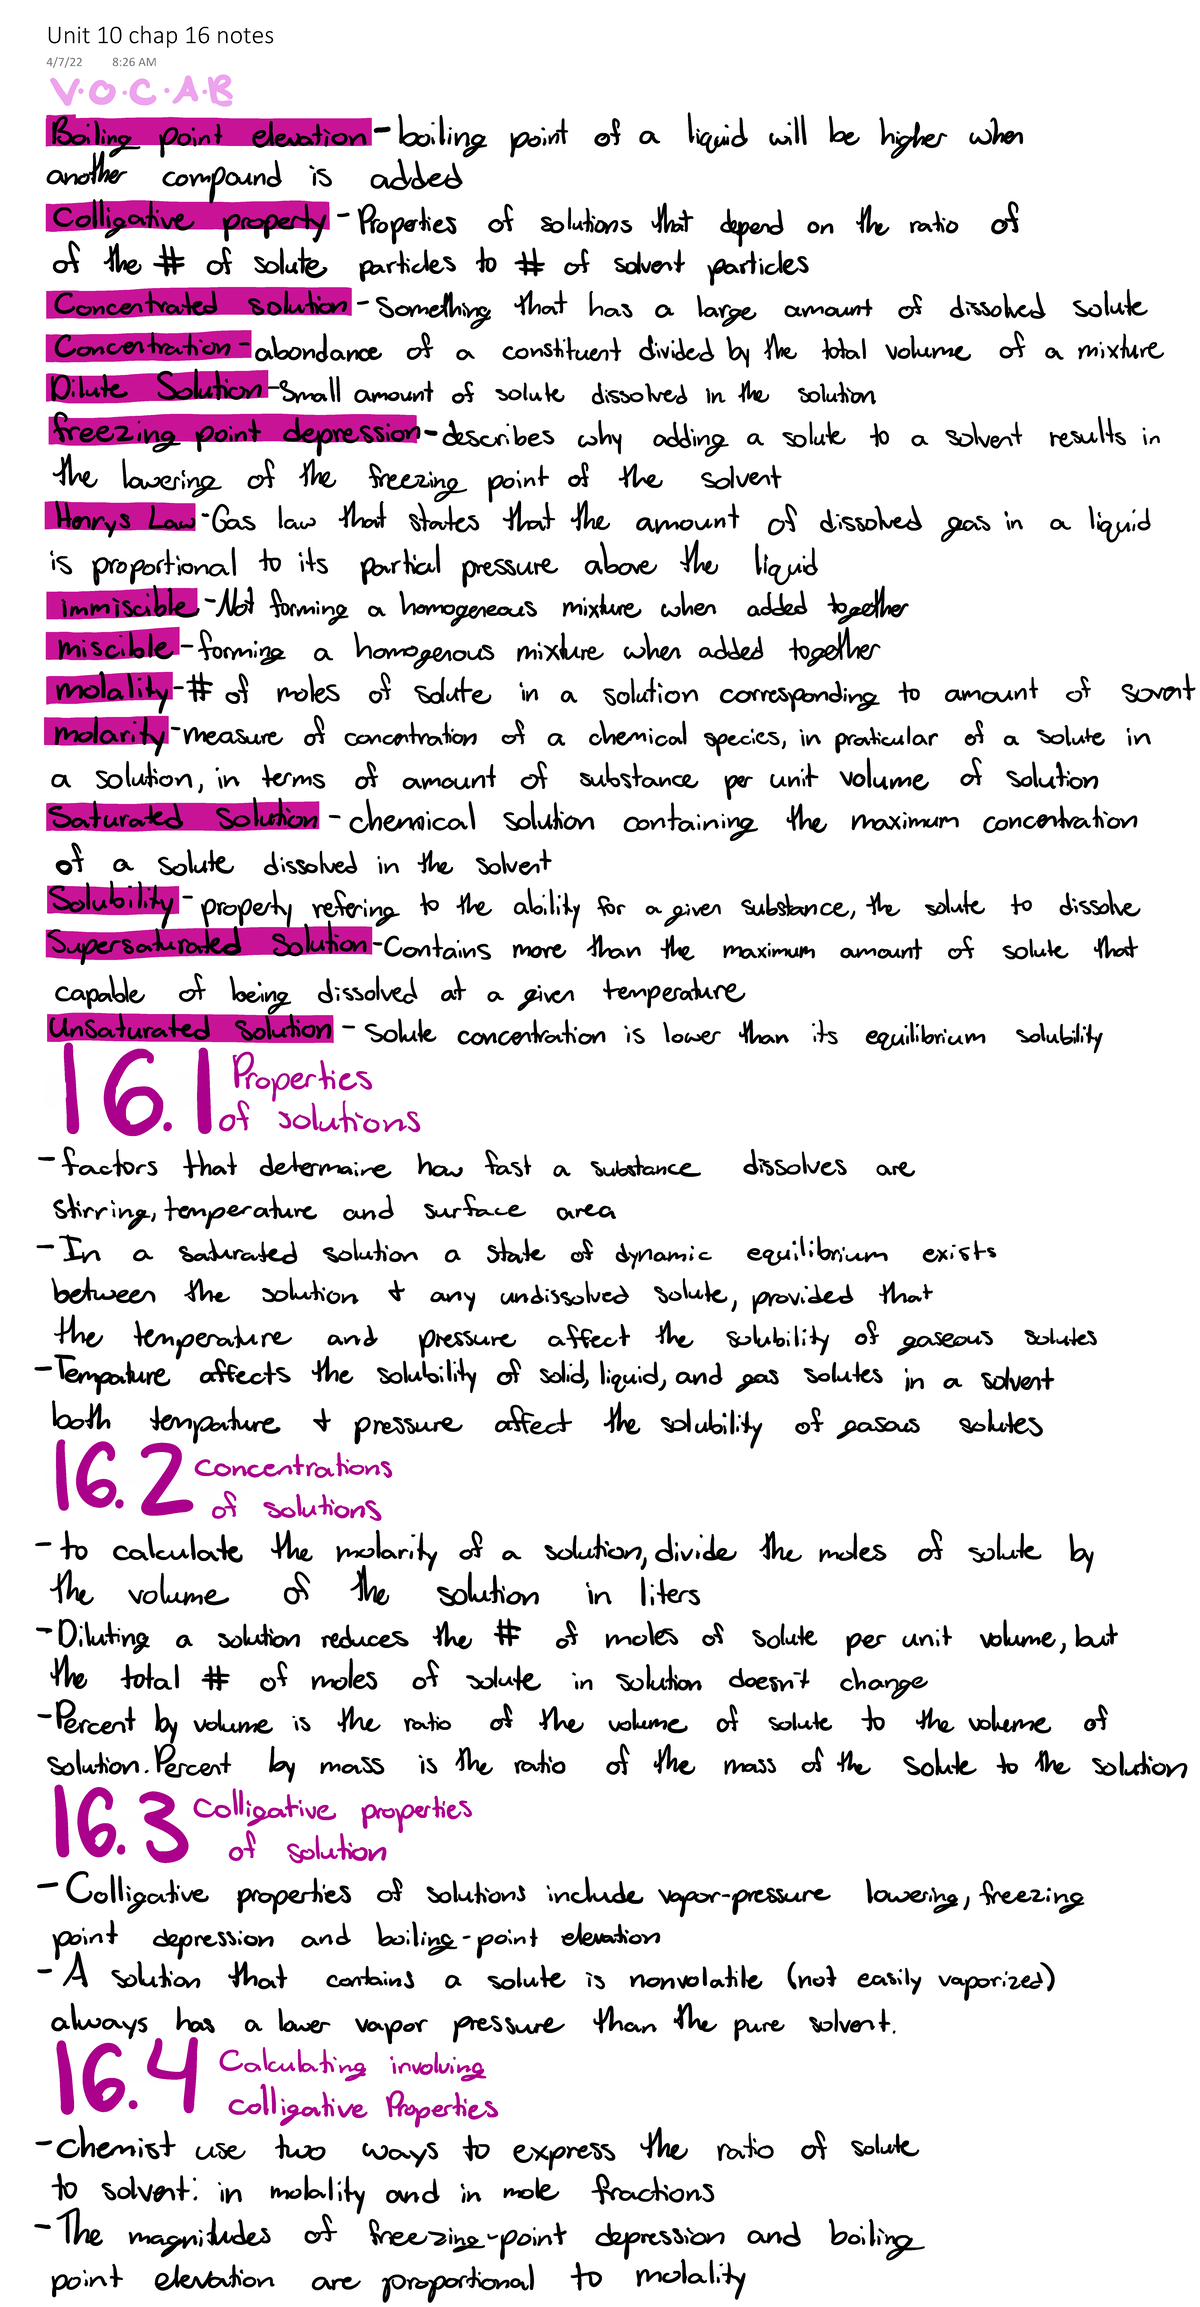 Unit 10 chap 16 notes
4/7/22 8:26 AM
V.O.C.A.B
Boiling point elevation - boiling point of a liquid will be higher when
another compound is added
Colligative property - Properties of solutions that depend on the ratio of
of the # of solute particles to # of solvent particles
Concentrated solution - Something that has a large amount of dissolved solute
Concentration - abondance of a constituent divided by the total volume of a mixture
Dilute Solution - Small amount of solute dissolved in the solution
freezing point depression - describes why adding a solute to a solvent results in
the lowering of the freezing point of the solvent
Henrys Law - Gas law that states that the amount of dissolved gas in a liquid
is proportional to its partial pressure above the liquid
immiscible - Not forming a homogeneous mixture when added together
miscible - forming a homogenous mixture when added together
molality - # of moles of solute in a solution corresponding to amount of sovent
molarity - measure of concentration of a chemical species, in praticular of a solute in
a solution, in terms of amount of substance per unit volume of solution
Saturated Solution - chemical solution containing the maximum concentration
of a solute dissolved in the solvent
Solubility - property refering to the ability for a given substance, the solute to dissolve
Supersaturated Solution - Contains more than the maximum amount of solute that
capable of being dissolved at a given temperature
Unsaturated Solution - solute concentration is lower than its equilibrium solubility
16.1 Properties
of solutions
- factors that determaire how fast a substance dissolves are
stirring, temperature and surface area
- In a saturated solution a state of dynamic equilibrium exists
between the solution + any undissolved solute, provided that
the temperature and pressure affect the solubility of gaseous solutes
- Tempature affects the solubility of solid, liquid, and gas solutes in a solvent
both tempature + pressure affect the solubility of gasous solutes
16.2 Concentrations
of solutions
- to calculate the molarity of a solution, divide the moles of solute by
the volume of the solution in liters
- Diluting a solution reduces the # of moles of solute per unit volume, but
the total # of moles of solute in solution doesn't change
- Percent by volume is the ratio of the volume of solute to the volume of
solution. Percent by mass is the ratio of the mass of the solute to the solution
16.3 Colligative properties
of solution
- Colligative properties of solutions include vapor-pressure lowering, freezing
point depression and boiling-point elevation
- A solution that contains a solute is nonvolatile (not easily vaporized)
always has a lower vapor pressure than the pure solvent.
16.4 Calculating involving
colligative Properties
- chemist use two ways to express the ratio of solute
to solvent: in molality and in mole fractions
- The magnitudes of freezing-point depression and boiling
point elevation are proportional to molality